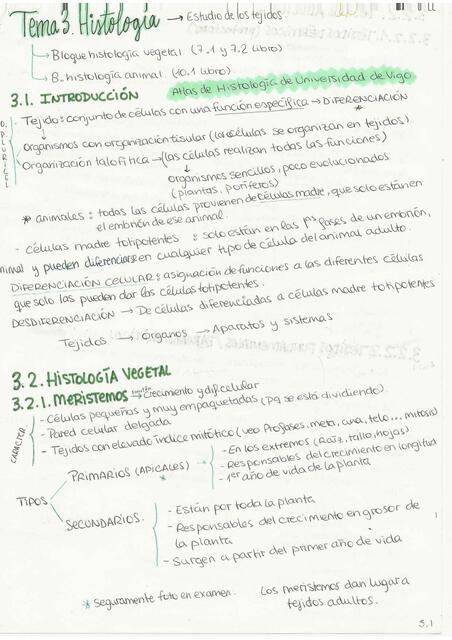 Tema 3. Histología → Estudio de los tejidos
→ Bloque histología vegetal (7.1 y 7.2 libro)
→ B. histología animal (10.1 libro).
Atlas de Histología de Universidad de Vigo
3.1. INTRODUCCIÓN
- Tejido: conjunto de células con una función específica → DIFERENCIACIÓN
O. PLURICEL
- Organismos con organización tisular (las células se organizan en tejidos).
- Organización talofítica → (las células realizan todas las funciones)
organismos sencillos, poco evolucionados
(plantas, poríferos)
* animales: todas las células provienen de células madre, que solo están en
el embrión de ese animal.
- Células madre totipotentes: solo están en las 1as fases de un embrión,
animal y pueden diferenciarse en cualquier tipo de célula del animal adulto.
DIFERENCIACIÓN CELULAR: asignación de funciones a las diferentes células
que solo las pueden dar las células totipotentes.
DESDIFERENCIACIÓN → De células diferenciadas a células madre totipotentes
Tejidos → Órganos → Aparatos y sistemas
3.2. HISTOLOGÍA VEGETAL
3.2.1. MERISTEMOS función → Crecimiento y dif. celular
CARACTER.
- Células pequeñas y muy empaquetadas (pq se está dividiendo)
- Pared celular delgada
- Tejidos con elevado índice mitótico (veo Profases, meta, ana, telo... mitosis)
TIPOS
PRIMARIOS (APICALES) *
- En los extremos (Raíz, tallo, hojas)
- Responsables del crecimiento en longitud
- 1er año de vida de la planta
SECUNDARIOS.
- Están por toda la planta
- Responsables del crecimiento en grosor de
la planta
- Surgen a partir del primer año de vida
* Seguramente foto en examen.
Los meristemos dan lugar a
tejidos adultos.